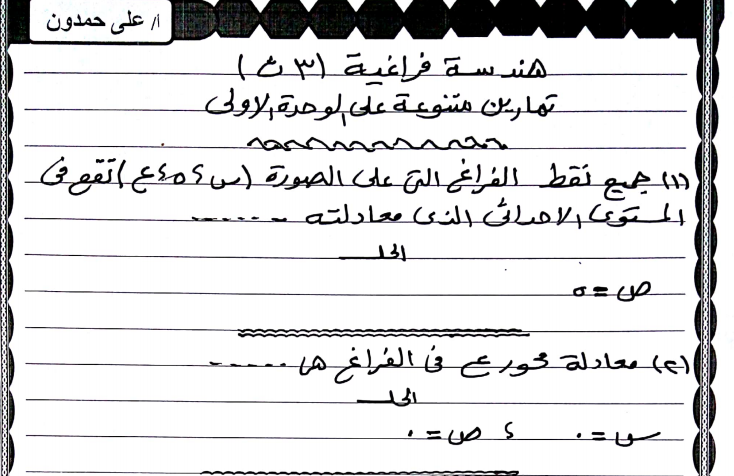 أ/ على حمدون
هندسة فراغية (٣ ث)
تمارين متنوعة على الوحدة الاولى
(١) جميع نقط الفراغ التى على الصورة (س ، ٥ ، ع) تقع فى
المستوى الاحداثى الذى معادلته ------
الحل
ص = ٥
(٢) معادلة محور ع فى الفراغ هى ------
الحل
س = ٠ ، ص = ٠